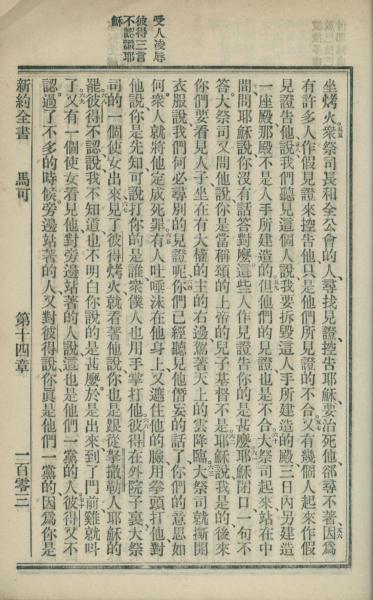 受人凌辱
彼得三言
不認識耶
穌
坐烤火衆祭司長和全公會的人尋找見證控告耶穌要治死他卻尋不著因爲
有許多人作假見證來控告他只是他們所見證的不合又有幾個人起來作假
見證告他說我們聽見這個人說我要拆毀這人手所建造的殿三日內另建造
一座殿那殿不是人手所建造的但他們的見證也是不合大祭司起來站在中
間問耶穌說你沒有話答對麼這些人作見證告你的是甚麼耶穌閉口一句不
答大祭司又問他說你是當稱頌的上帝的兒子基督不是耶穌說我是的後來
你們要看見人子坐在有大權的主的右邊駕著天上的雲降臨大祭司就撕開
衣服說我們何必尋別的見證呢你們已經聽見他僭妄的話了你們的意思如
何衆人就將他定成死罪有人吐唾沫在他身上又遮住他的臉用拳頭打他對
他說你是先知可說打你的是誰衆僕人也用手掌打他彼得在外院子裏大祭
司的一個使女出來見了彼得烤火就看著他說你也是跟從拏撒勒人耶穌的
罷彼得不認說我不知道也不明白你說的是甚麼於是出來到了門前雞就呌
了又有一個使女看見他對旁邊站著的人說這也是他們一黨的人彼得又不
認過了不多的時候旁邊站著的人又對彼得說你眞是他們一黨的因爲你是
新約全書 馬可 第十四章 二百零三